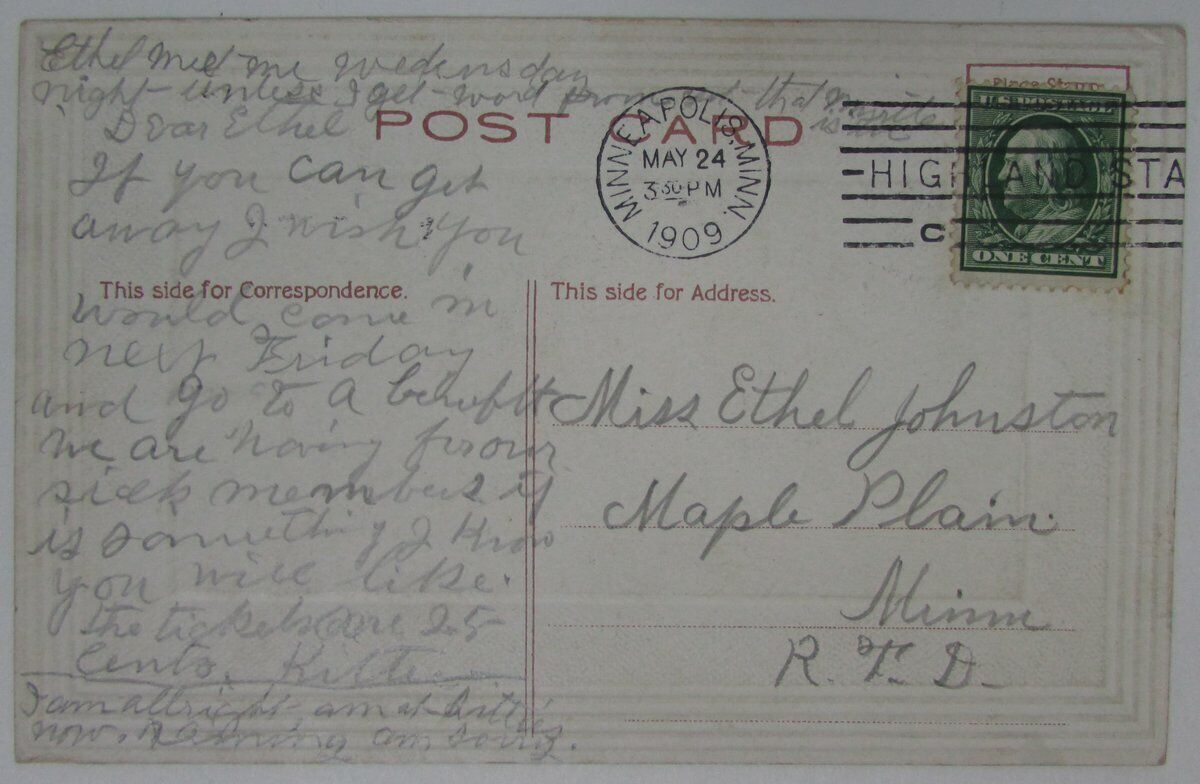 Ethel Meet me wedensday
night unless I get word from that
Dear Ethel
POST CARD
If you can get
away I wish you
This side for Correspondence.
would come in
next Friday
and go to a benefit
we are having for our
sick members it
is something I know
you will like.
the tickets are 25
cents. Kitte
I am allright am at Kitte's
now.            am            .
Place Stamp
MINNEAPOLIS, MINN.
MAY 24
3 30 PM
1909
HIGHLAND STA
C
U.S. POSTAGE
ONE CENT
This side for Address.
Miss Ethel Johnston
Maple Plain.
Minn
R. F. D.